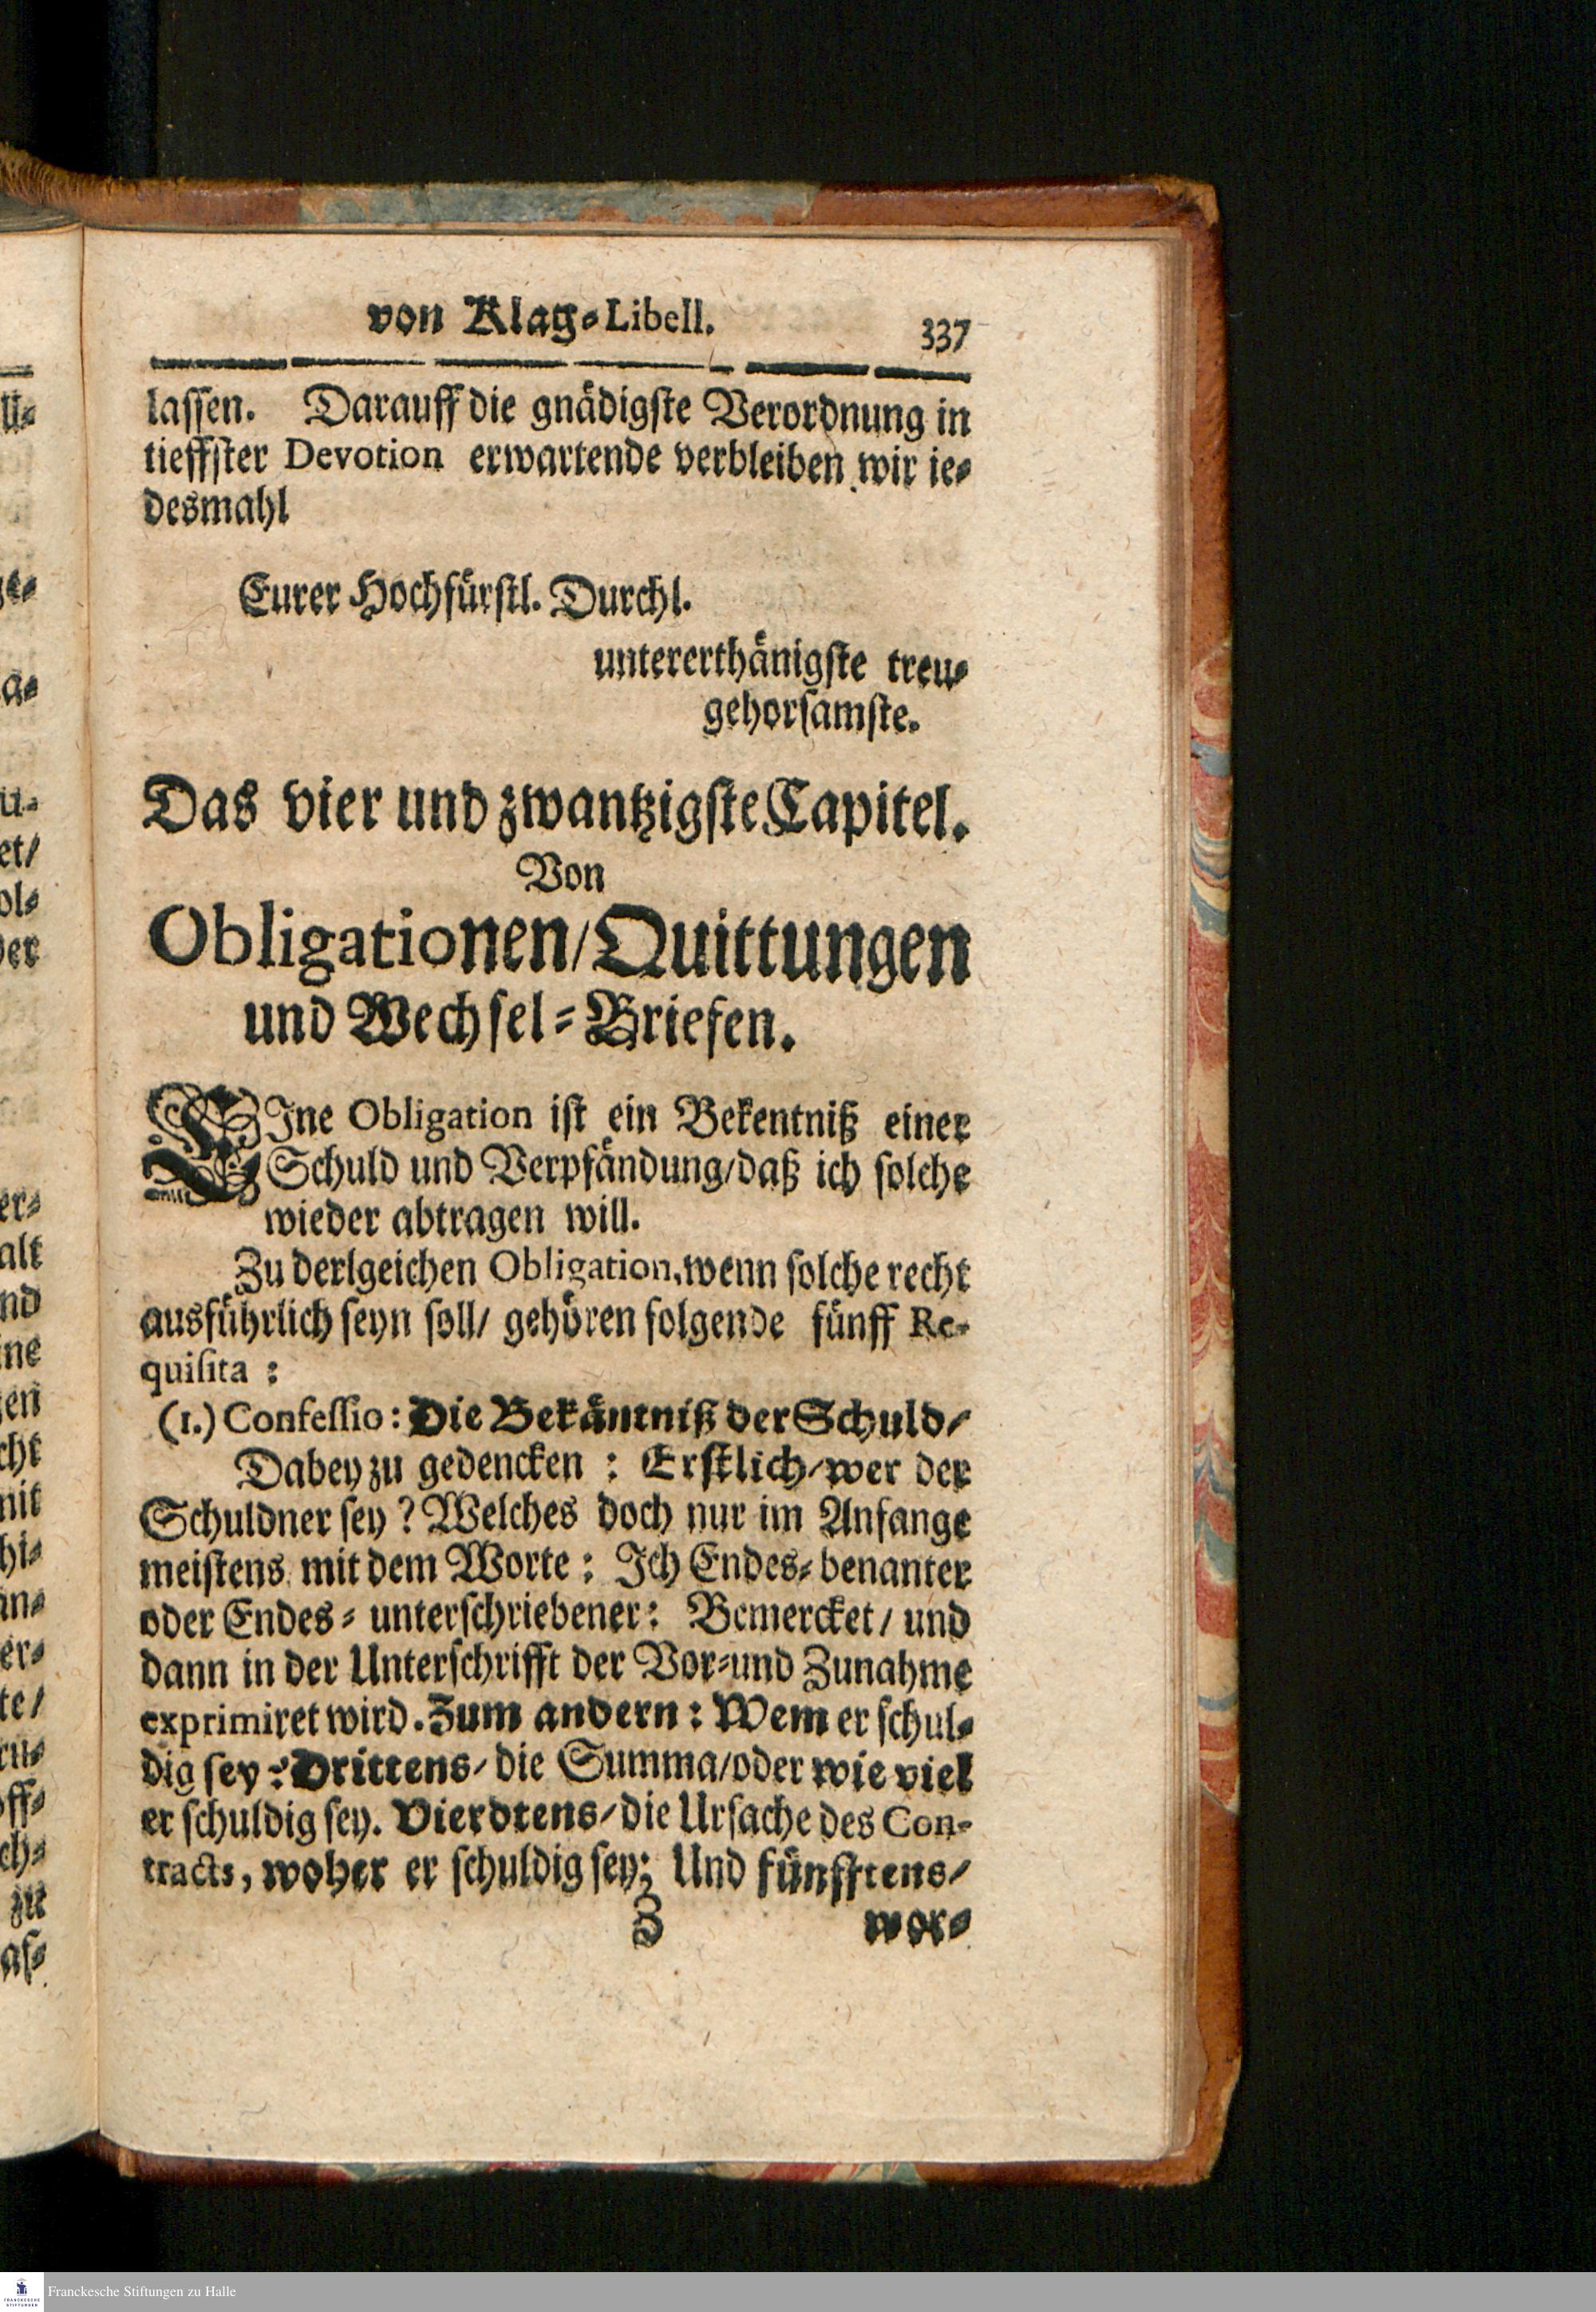 von Klag-Libell.
337
lassen. Darauff die gnädigste Verordnung in
tieffster Devotion erwartende verbleiben wir ie-
desmahl
Eurer Hochfürstl. Durchl.
untererthänigste treu-
gehorsamste.
Das vier und zwantzigste Capitel.
Von
Obligationen/Quittungen
und Wechsel-Briefen.
EIne Obligation ist ein Bekentniß einer
Schuld und Verpfändung/daß ich solche
wieder abtragen will.
Zu derlgeichen Obligation, wenn solche recht
ausführlich seyn soll/ gehören folgende fünff Re-
quisita :
(1.) Confessio: Die Bekäntniß der Schuld/
Dabey zu gedencken : Erstlich/wer der
Schuldner sey ? Welches doch nur im Anfange
meistens mit dem Worte : Ich Endes-benanter
oder Endes-unterschriebener: Bemercket/ und
dann in der Unterschrifft der Vor-und Zunahme
exprimiret wird. Zum andern: Wem er schul-
dig sey: Drittens/ die Summa/oder wie viel
er schuldig sey. Vierdtens/die Ursache des Con-
tracts, woher er schuldig sey; Und fünfftens/
Z
wor-
ü-
ge-
a-
u-
et/
ol-
der
er-
alt
nd
ine
en
cht
mit
hi-
an-
er-
te/
ru-
ff-
ch-
zu
as-
Franckesche Stiftungen zu Halle
FRANCKESCHE
STIFTUNGEN